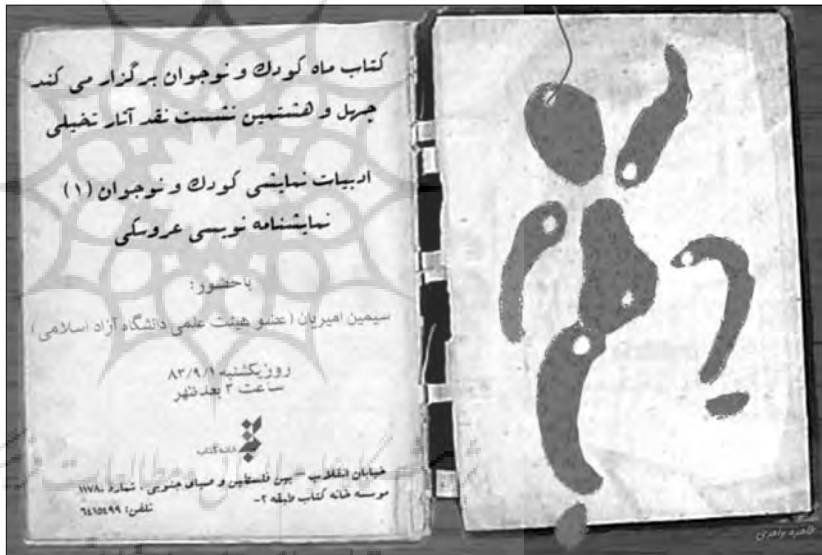 کتاب ماه کودک و نوجوان برگزار می کند
چهل و هشتمین نشست نقد آثار تخیلی
ادبیات نمایشی کودک و نوجوان (۱)
نمایشنامه نویسی عروسکی
باحضور:
سیمین امیریان (عضو هیئت علمی دانشگاه آزاد اسلامی)
روز یکشنبه ۸۳/۹/۱
ساعت ۳ بعدظهر
خانه کتاب
خیابان انقلاب - بین فلسطین و صبای جنوبی، شماره ۱۱۷۸۰
موسسه خانه کتاب طبقه ۲-
تلفن: ۶۴۱۵۴۹۹